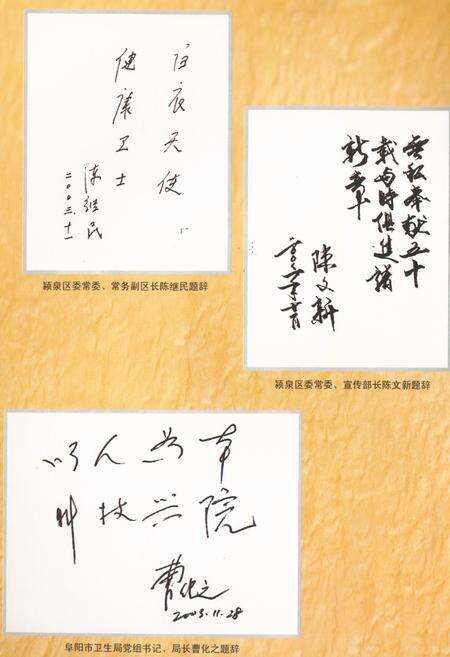 白衣天使
健康卫士
陈继民
二00三.十一
颍泉区委常委、常务副区长陈继民题辞
無私奉献五十
載与时俱進譜
新章
陳文新
颍泉区委常委、宣传部长陈文新题辞
以人为本
科技兴院
曹化之
2003.11.28
阜阳市卫生局党组书记、局长曹化之题辞